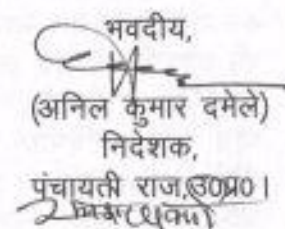 भवदीय,
(अनिल कुमार दमेले)
निदेशक,
पंचायती राज, उ0प्र0।